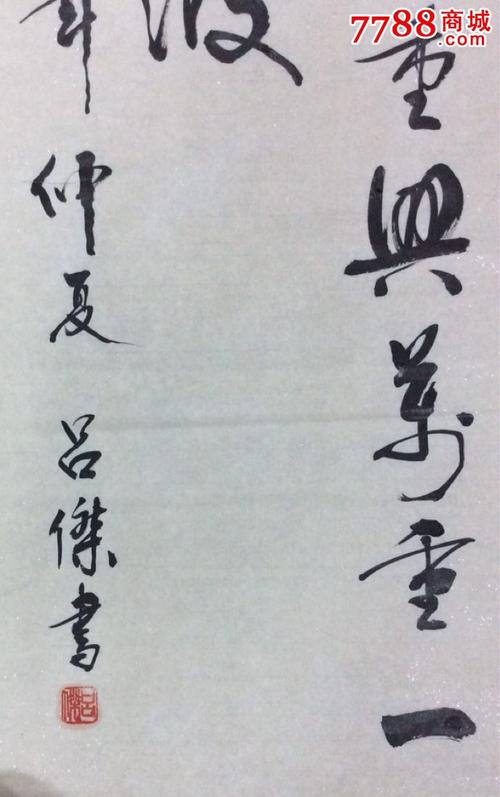 7788商城
.com
重與萬重一
波
年仲夏 呂傑書
呂傑